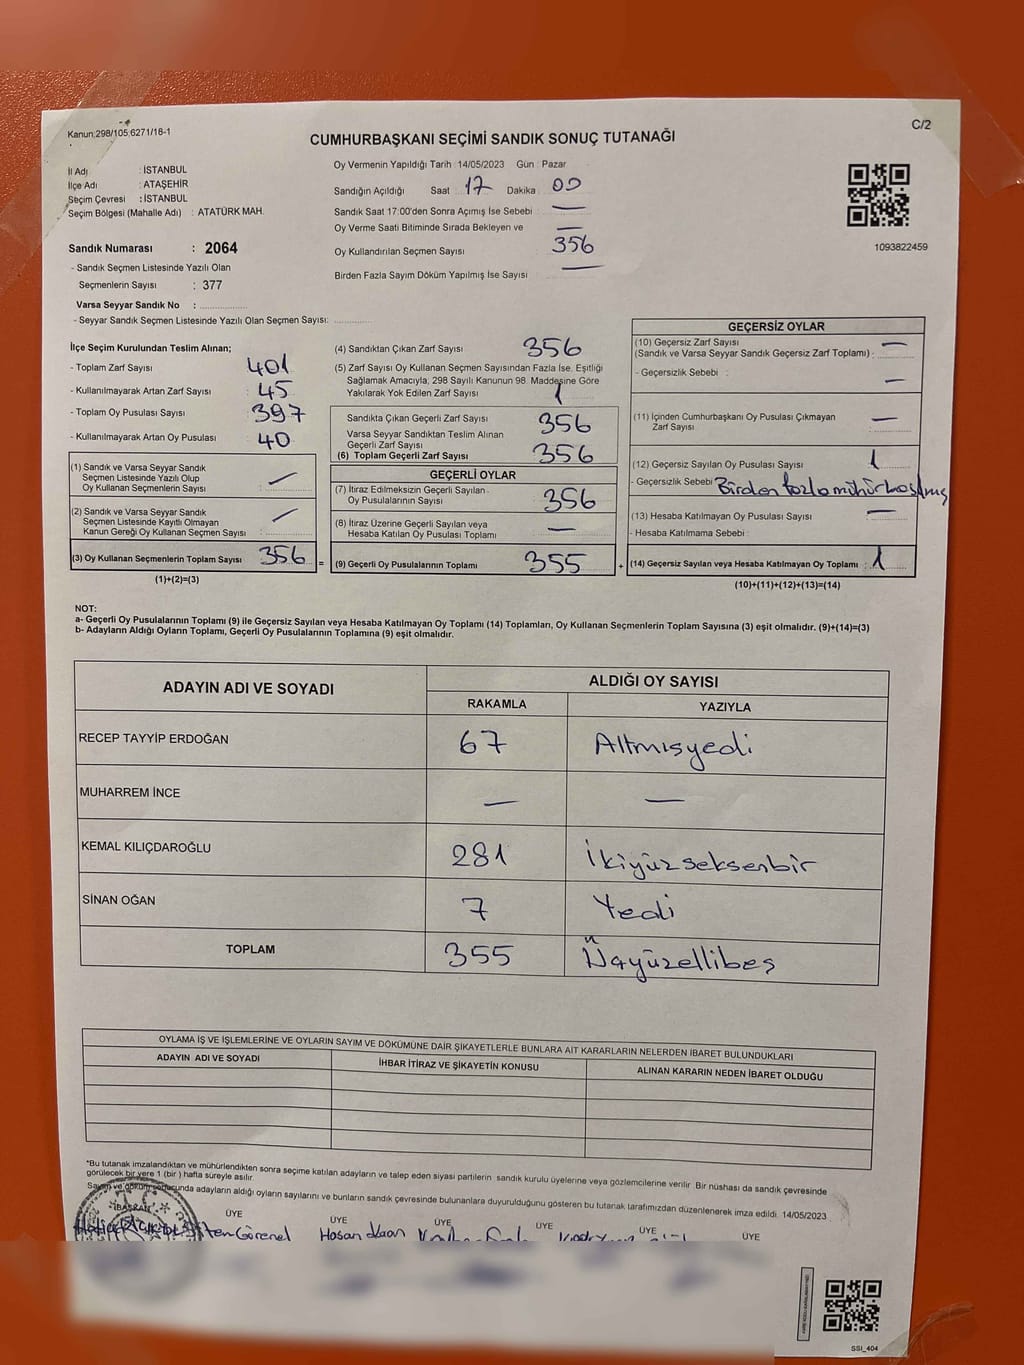 Kanun:298/105,6271/18-1
C/2
CUMHURBAŞKANI SEÇİMİ SANDIK SONUÇ TUTANAĞI
İl Adı : İSTANBUL
İlçe Adı : ATAŞEHİR
Seçim Çevresi : İSTANBUL
Seçim Bölgesi (Mahalle Adı) : ATATÜRK MAH.
Sandık Numarası : 2064
- Sandık Seçmen Listesinde Yazılı Olan
Seçmenlerin Sayısı : 377
Varsa Seyyar Sandık No :
- Seyyar Sandık Seçmen Listesinde Yazılı Olan Seçmen Sayısı:
Oy Vermenin Yapıldığı Tarih : 14/05/2023 Gün : Pazar
Sandığın Açıldığı Saat : 17 Dakika : 00
Sandık Saat 17:00'den Sonra Açımış İse Sebebi : —
Oy Verme Saati Bitiminde Sırada Bekleyen ve —
Oy Kullandırılan Seçmen Sayısı : 356
Birden Fazla Sayım Döküm Yapılmış İse Sayısı : —
1093822459
İlçe Seçim Kurulundan Teslim Alınan;
- Toplam Zarf Sayısı : 401
- Kullanılmayarak Artan Zarf Sayısı : 45
- Toplam Oy Pusulası Sayısı : 397
- Kullanılmayarak Artan Oy Pusulası : 40
(1) Sandık ve Varsa Seyyar Sandık
Seçmen Listesinde Yazılı Olup
Oy Kullanan Seçmenlerin Sayısı : —
(2) Sandık ve Varsa Seyyar Sandık
Seçmen Listesinde Kayıtlı Olmayan
Kanun Gereği Oy Kullanan Seçmen Sayısı : —
(3) Oy Kullanan Seçmenlerin Toplam Sayısı : 356 =
(1)+(2)=(3)
(4) Sandıktan Çıkan Zarf Sayısı : 356
(5) Zarf Sayısı Oy Kullanan Seçmen Sayısından Fazla İse, Eşitliği
Sağlamak Amacıyla, 298 Sayılı Kanunun 98. Maddesine Göre
Yakılarak Yok Edilen Zarf Sayısı : 1
Sandıkta Çıkan Geçerli Zarf Sayısı : 356
Varsa Seyyar Sandıktan Teslim Alınan
Geçerli Zarf Sayısı
(6) Toplam Geçerli Zarf Sayısı : 356
GEÇERLİ OYLAR
(7) İtiraz Edilmeksizin Geçerli Sayılan
Oy Pusulalarının Sayısı : 356
(8) İtiraz Üzerine Geçerli Sayılan veya
Hesaba Katılan Oy Pusulası Toplamı : —
(9) Geçerli Oy Pusulalarının Toplamı : 355 +
GEÇERSİZ OYLAR
(10) Geçersiz Zarf Sayısı —
(Sandık ve Varsa Seyyar Sandık Geçersiz Zarf Toplamı) :
- Geçersizlik Sebebi : —
(11) İçinden Cumhurbaşkanı Oy Pusulası Çıkmayan
Zarf Sayısı : —
(12) Geçersiz Sayılan Oy Pusulası Sayısı : 1
- Geçersizlik Sebebi : Birden fazla mühür basılmış
(13) Hesaba Katılmayan Oy Pusulası Sayısı : —
- Hesaba Katılmama Sebebi :
(14) Geçersiz Sayılan veya Hesaba Katılmayan Oy Toplamı : 1
(10)+(11)+(12)+(13)=(14)
NOT:
a- Geçerli Oy Pusulalarının Toplamı (9) ile Geçersiz Sayılan veya Hesaba Katılmayan Oy Toplamı (14) Toplamları, Oy Kullanan Seçmenlerin Toplam Sayısına (3) eşit olmalıdır. (9)+(14)=(3)
b- Adayların Aldığı Oyların Toplamı, Geçerli Oy Pusulalarının Toplamına (9) eşit olmalıdır.
ADAYIN ADI VE SOYADI
ALDIĞI OY SAYISI
RAKAMLA YAZIYLA
RECEP TAYYİP ERDOĞAN 67 Altmışyedi
MUHARREM İNCE — —
KEMAL KILIÇDAROĞLU 281 İkiyüzseksenbir
SİNAN OĞAN 7 Yedi
TOPLAM 355 Üçyüzellibeş
OYLAMA İŞ VE İŞLEMLERİNE VE OYLARIN SAYIM VE DÖKÜMÜNE DAİR ŞİKAYETLERLE BUNLARA AİT KARARLARIN NELERDEN İBARET BULUNDUKLARI
ADAYIN ADI VE SOYADI İHBAR İTİRAZ VE ŞİKAYETİN KONUSU ALINAN KARARIN NEDEN İBARET OLDUĞU
*Bu tutanak imzalandıktan ve mühürlendikten sonra seçime katılan adayların ve talep eden siyasi partilerin sandık kurulu üyelerine veya gözlemcilerine verilir. Bir nüshası da sandık çevresinde
görülecek bir yere 1 (bir) hafta süreyle asılır.
Sayım ve döküm sonucunda adayların aldığı oyların sayılarını ve bunların sandık çevresinde bulunanlara duyurulduğunu gösteren bu tutanak tarafımızdan düzenlenerek imza edildi. 14/05/2023
BAŞKAN ÜYE ÜYE ÜYE ÜYE ÜYE ÜYE
Görenel Hasan
SSİ_404